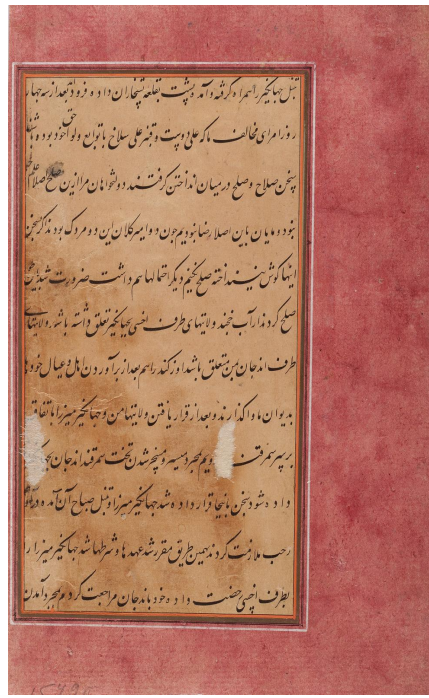 تنبل جهانگیر را همراه گرفته آمده پشت بقلعه پشخاران داده فرود بعد از سه چهار
روز امرای مخالف ما که علی دوست و قنبر علی سلاخ با توابع ولواحق خود بوده باشند
سخن صلاح و صلح در میان انداختن گرفتند دولتخواهان مرا ازین مصلح اصلا علم
نبود و مایان باین اصلا رضا نبودیم چون دو امیر کلان این دو مردک بودند اگر بسخن
اینها گوش نینداخته صلح نکنیم دیگر احتمالها هم داشت ضرورت شد باین
صلح کردند از آب خجند ولایتهای طرف اخسی بجهانگیر تعلق داشته باشد ولایتهای
طرف اندجان بمن متعلق باشد اوزکند را هم بعد از برآوردن اهل و عیال خود
بدیوان ما واگذارند و بعد از قرار یافتن ولایتها من و جهانگیر میرزا باتفاق
بر سر سمرقند رویم بمجرد میسر و مسخر شدن تخت سمرقند اندجان بجهانگیر
داده شود سخن باینجا قرار داده شد جهانگیر میرزا و تنبل صباح آن آمده
ملازمت کردند بهمین طریق مقرر شد عهدها و شرطها شد جهانگیر میرزا را
بطرف اخسی رخصت داده خود باندجان مراجعت کردم بمجرد آمدن